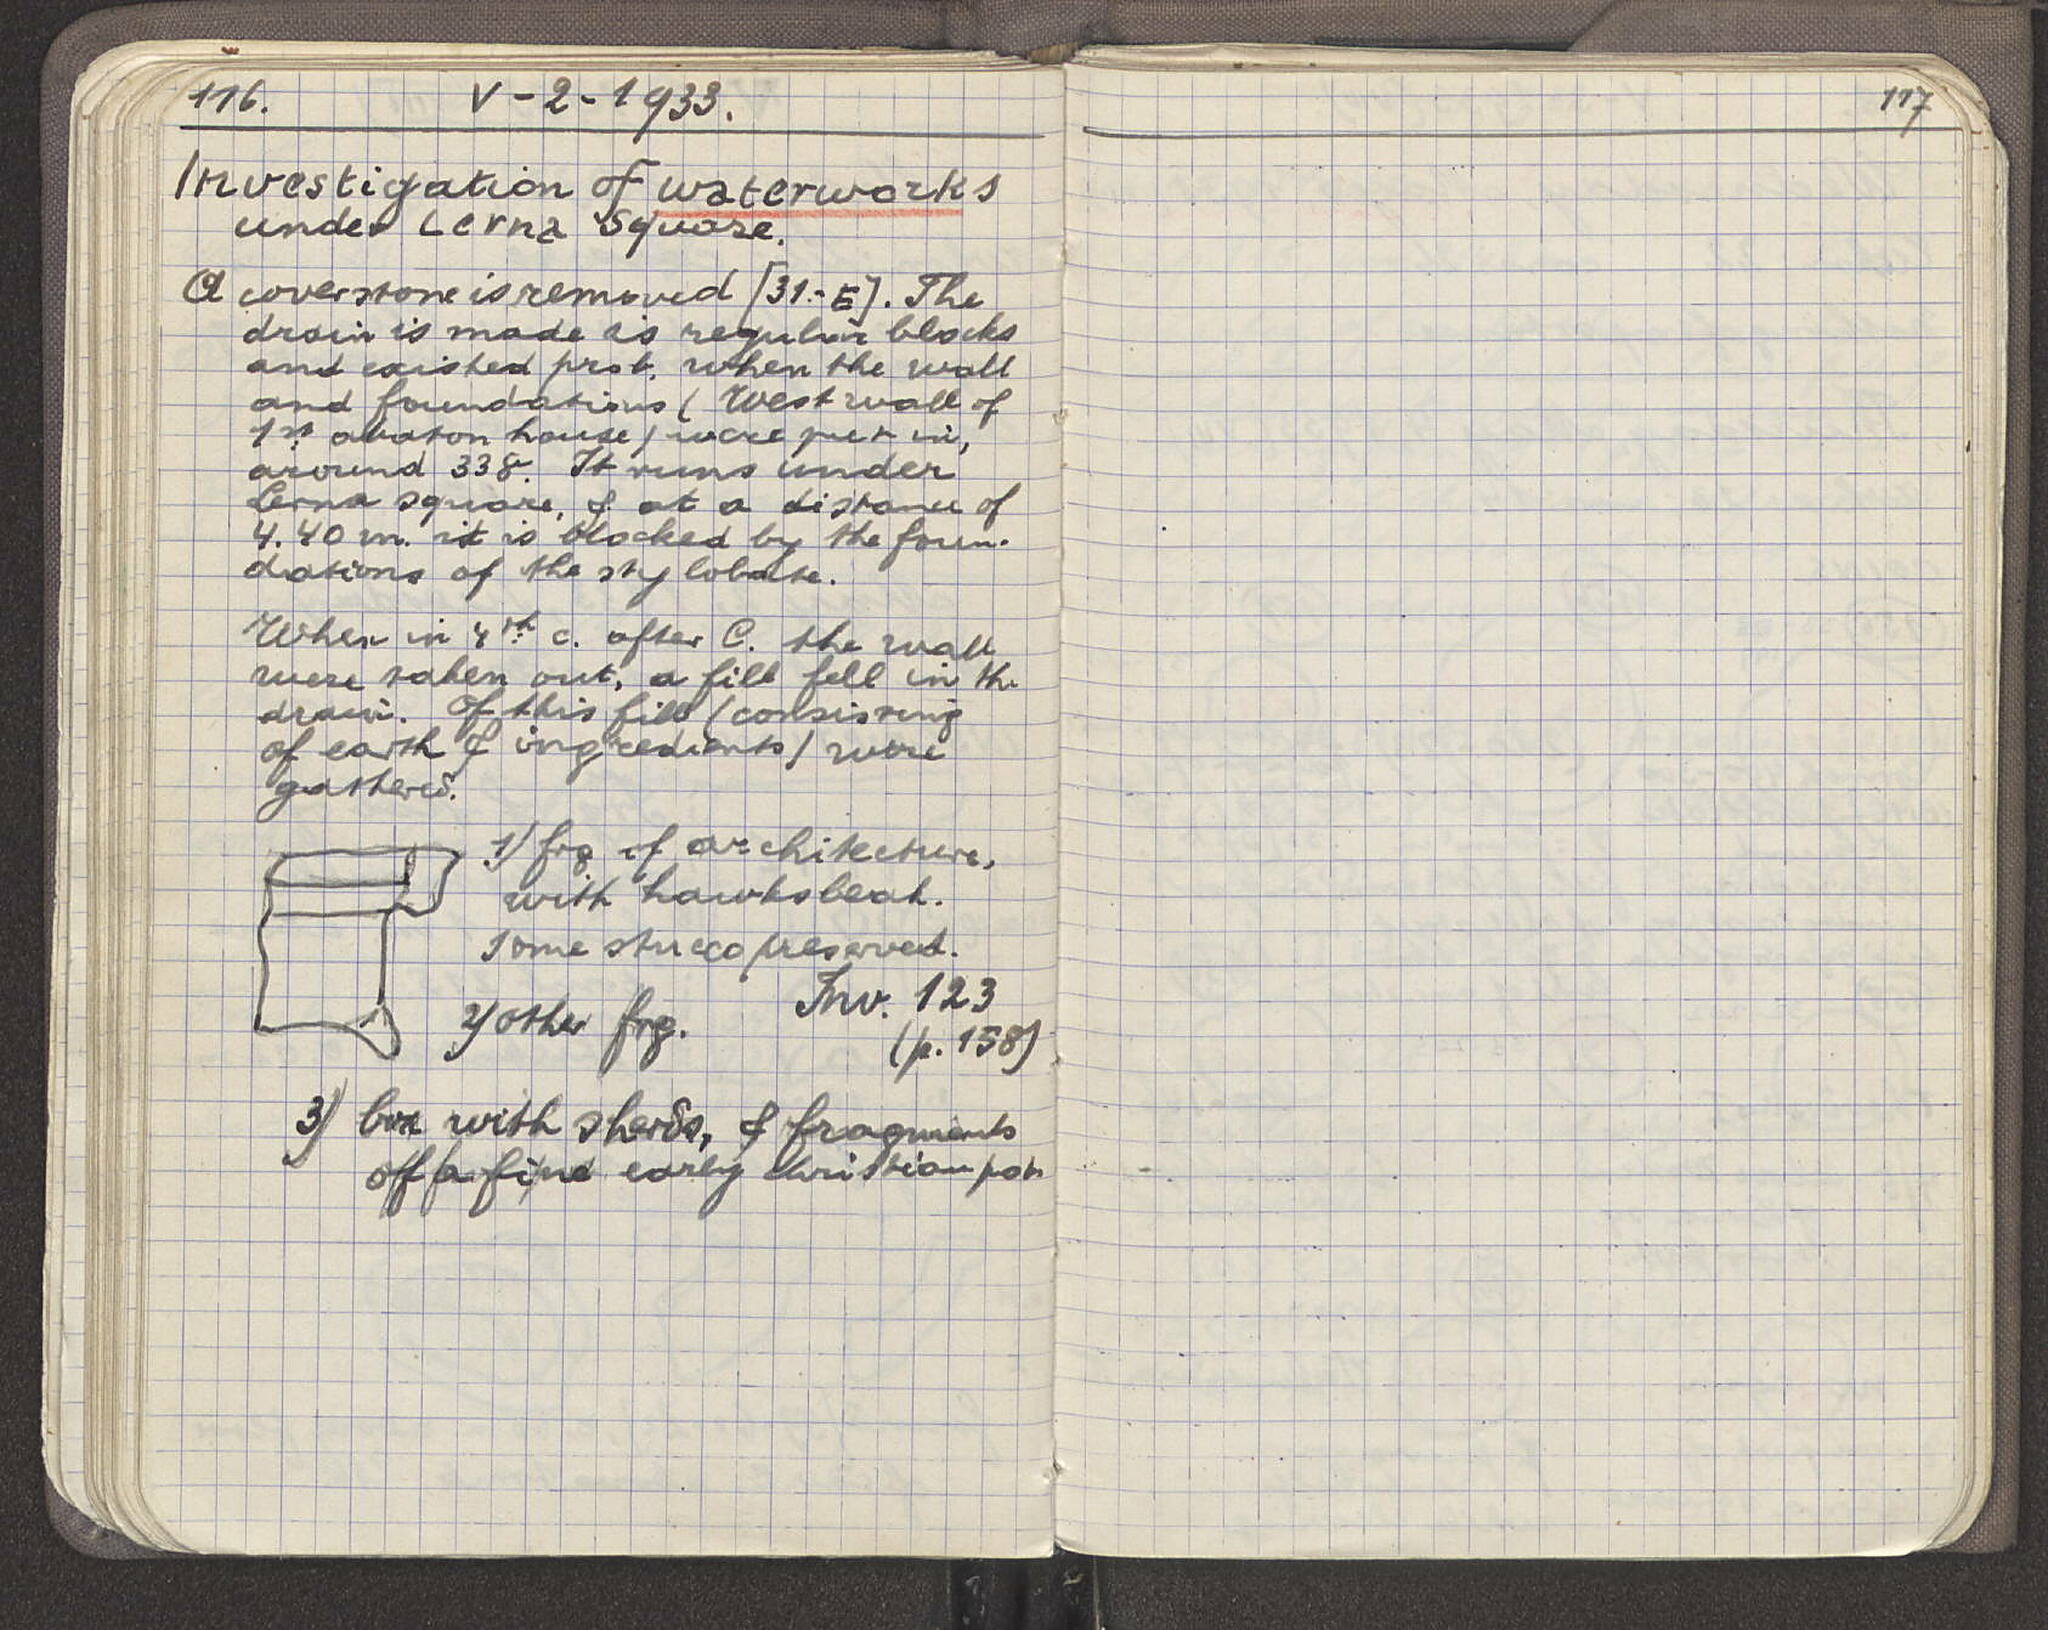 116. V-2-1933.
Investigation of waterworks
under Lerna Square.
A coverstone is removed [31.-E]. The
drain is made is regular blocks
and existed prob. when the wall
and foundations (West wall of
1st abaton house) were put in,
around 338. It runs under
Lerna square, & at a distance of
4.40 m. it is blocked by the foun-
dations of the stylobate.
When in 4th c. after C. the wall
were taken out, a fill fell in the
drain. Of this fill (consisting
of earth & ingredients) were
gathered.
1) frg. of architecture,
with hawksbeak.
some stucco preserved.
Inv. 123
2) other frg.
(p. 158)
3) box with sherds, & fragments
off a fine early christian pot
117